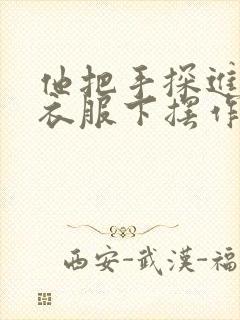 他把手探进
衣服下摆作
西安-武漢-福